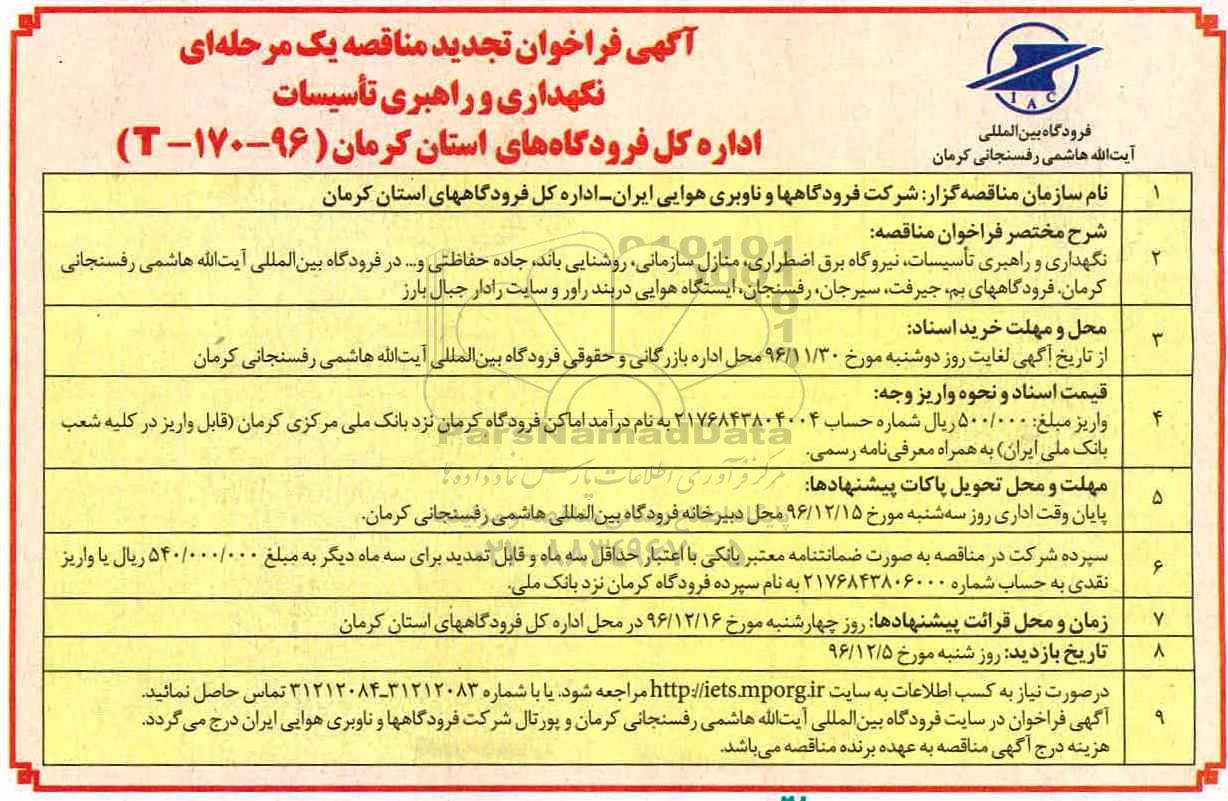 آگهی فراخوان تجدید مناقصه یک مرحله‌ای
نگهداری و راهبری تأسیسات
اداره کل فرودگاه‌های استان کرمان (۹۶-۱۷۰-T)
IAC
فرودگاه بین‌المللی
آیت‌الله هاشمی رفسنجانی کرمان
۱ نام سازمان مناقصه‌گزار: شرکت فرودگاهها و ناوبری هوایی ایران-اداره کل فرودگاههای استان کرمان
۲ شرح مختصر فراخوان مناقصه:
نگهداری و راهبری تأسیسات، نیروگاه برق اضطراری، منازل سازمانی، روشنایی باند، جاده حفاظتی و... در فرودگاه بین‌المللی آیت‌الله هاشمی رفسنجانی
کرمان. فرودگاههای بم، جیرفت، سیرجان، رفسنجان، ایستگاه هوایی دربند راور و سایت رادار جبال بارز
۳ محل و مهلت خرید اسناد:
از تاریخ آگهی لغایت روز دوشنبه مورخ ۹۶/۱۱/۳۰ محل اداره بازرگانی و حقوقی فرودگاه بین‌المللی آیت‌الله هاشمی رفسنجانی کرمان
۴ قیمت اسناد و نحوه واریز وجه:
واریز مبلغ: ۵۰۰/۰۰۰ ریال شماره حساب ۲۱۷۶۸۴۳۸۰۴۰۰۴ به نام درآمد اماکن فرودگاه کرمان نزد بانک ملی مرکزی کرمان (قابل واریز در کلیه شعب
بانک ملی ایران) به همراه معرفی‌نامه رسمی.
۵ مهلت و محل تحویل پاکات پیشنهادها:
پایان وقت اداری روز سه‌شنبه مورخ ۹۶/۱۲/۱۵ محل دبیرخانه فرودگاه بین‌المللی هاشمی رفسنجانی کرمان.
۶ سپرده شرکت در مناقصه به صورت ضمانتنامه معتبر بانکی با اعتبار حداقل سه ماه و قابل تمدید برای سه ماه دیگر به مبلغ ۵۴۰/۰۰۰/۰۰۰ ریال یا واریز
نقدی به حساب شماره ۲۱۷۶۸۴۳۸۰۶۰۰۰ به نام سپرده فرودگاه کرمان نزد بانک ملی.
۷ زمان و محل قرائت پیشنهادها: روز چهارشنبه مورخ ۹۶/۱۲/۱۶ در محل اداره کل فرودگاههای استان کرمان
۸ تاریخ بازدید: روز شنبه مورخ ۹۶/۱۲/۵
۹ درصورت نیاز به کسب اطلاعات به سایت http://iets.mporg.ir مراجعه شود. یا با شماره ۳۱۲۱۲۰۸۳-۳۱۲۱۲۰۸۴ تماس حاصل نمائید.
آگهی فراخوان در سایت فرودگاه بین‌المللی آیت‌الله هاشمی رفسنجانی کرمان و پورتال شرکت فرودگاهها و ناوبری هوایی ایران درج می‌گردد.
هزینه درج آگهی مناقصه به عهده برنده مناقصه می‌باشد.
ParsNamadData
مرکز فرآوری اطلاعات پارس نماد داده‌ها